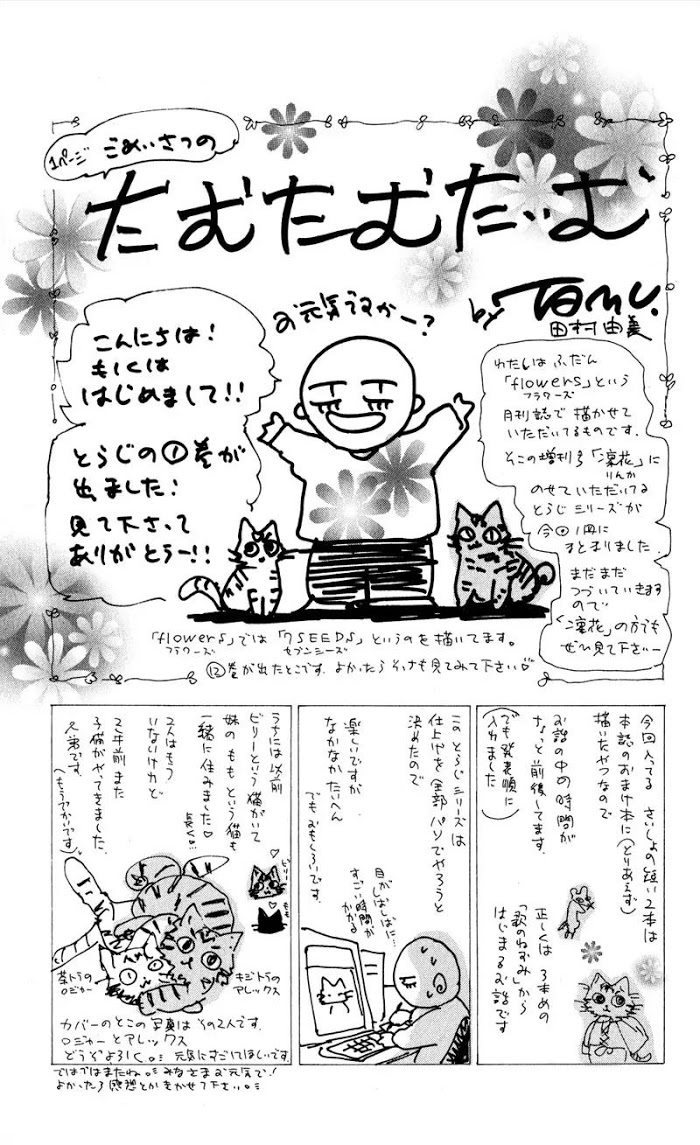 1ページ ごあいさつの
たむたむたいむ
by Tamu.
田村由美
お元気ですかー？
こんにちは！
もしくは
はじめまして！！
とらじの①巻が
出ました！
見て下さって
ありがとうー！！
わたしはふだん
「flowers」という
フラワーズ
月刊誌で描かせて
いただいてるものです。
そこの増刊号「凜花」に
りんか
のせていただいてる
とらじシリーズが
今回1冊に
まとまりました。
まだまだ
つづいていきます
ので
「凜花」の方でも
ぜひ見て下さいー
「flowers」では「7SEEDS」というのを描いてます。
フラワーズ
セブンシーズ
⑫巻が出たとこです。よかったらそっちも見てみて下さい♡
今回入ってる さいしょの短い2本は
本誌のおまけ本に（とりあえず）
描いたやつなので
お話の中の時間が
ちょっと前後してます。
（でも発表順に
入れました）
正しくは 3本めの
「歌のねずみ」から
はじまるお話です
このとらじシリーズは
仕上げを全部パソでやろうと
決めたので
楽しいですが
なかなかたいへん
でもおもしろいです。
目がしばしばに…
すごい時間が
かかる
うちには以前
ビリーという猫がいて
妹のももという猫も
一緒に住みました♡
長く…
2人はもう
いないけれど
2年前また
子猫がやってきました。
兄弟です。
（もうでかいです）
ビリー
もも
茶トラの
ロジャー
キジトラの
アレックス
カバーのとこの写真はその2人です。
ロジャーとアレックス
どうぞよろしく。 元気にすごしてほしいです。
ではではまたね。 みなさまお元気で！
よかったら感想とかきかせて下さい。